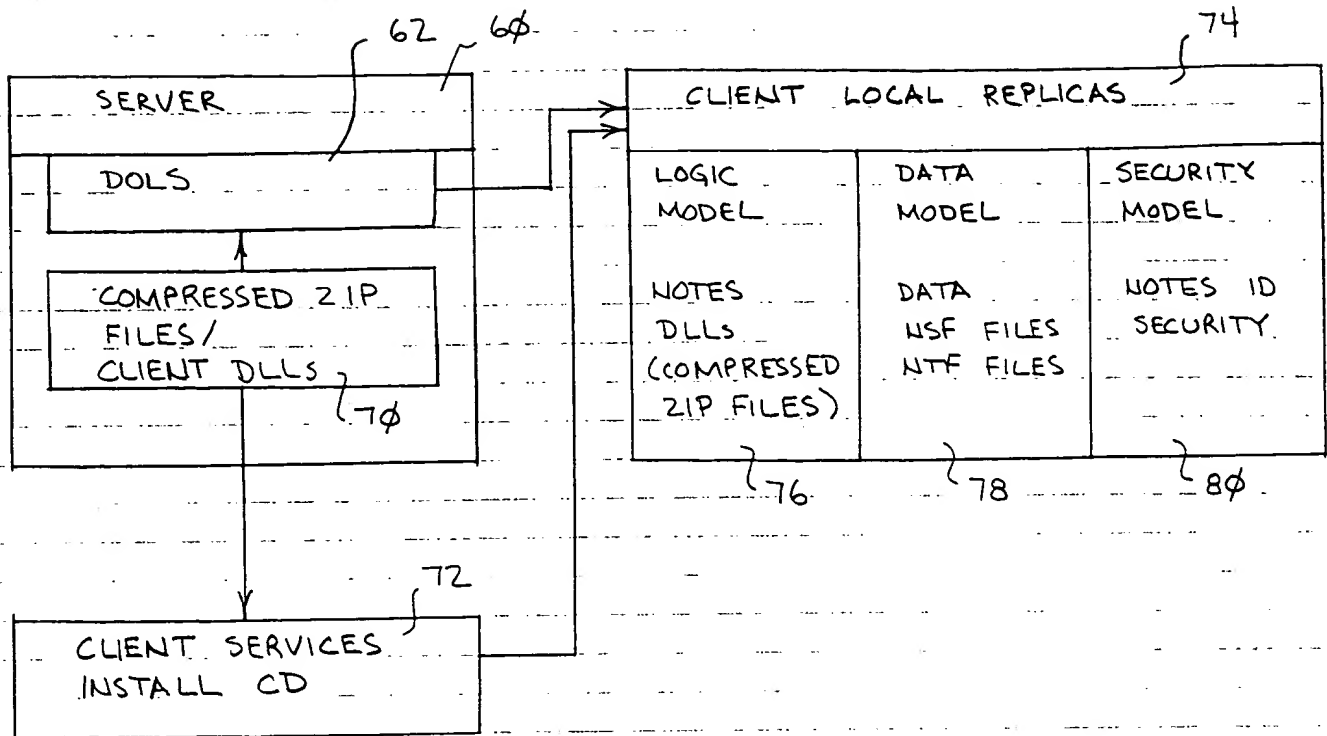 62
6Ø
74
SERVER
DOLS
COMPRESSED ZIP
FILES/
CLIENT DLLS
7Ø
CLIENT LOCAL REPLICAS
LOGIC
MODEL
NOTES
DLLS
(COMPRESSED
ZIP FILES)
76
DATA
MODEL
DATA
NSF FILES
NTF FILES
78
SECURITY
MODEL
NOTES ID
SECURITY
8Ø
72
CLIENT SERVICES
INSTALL CD